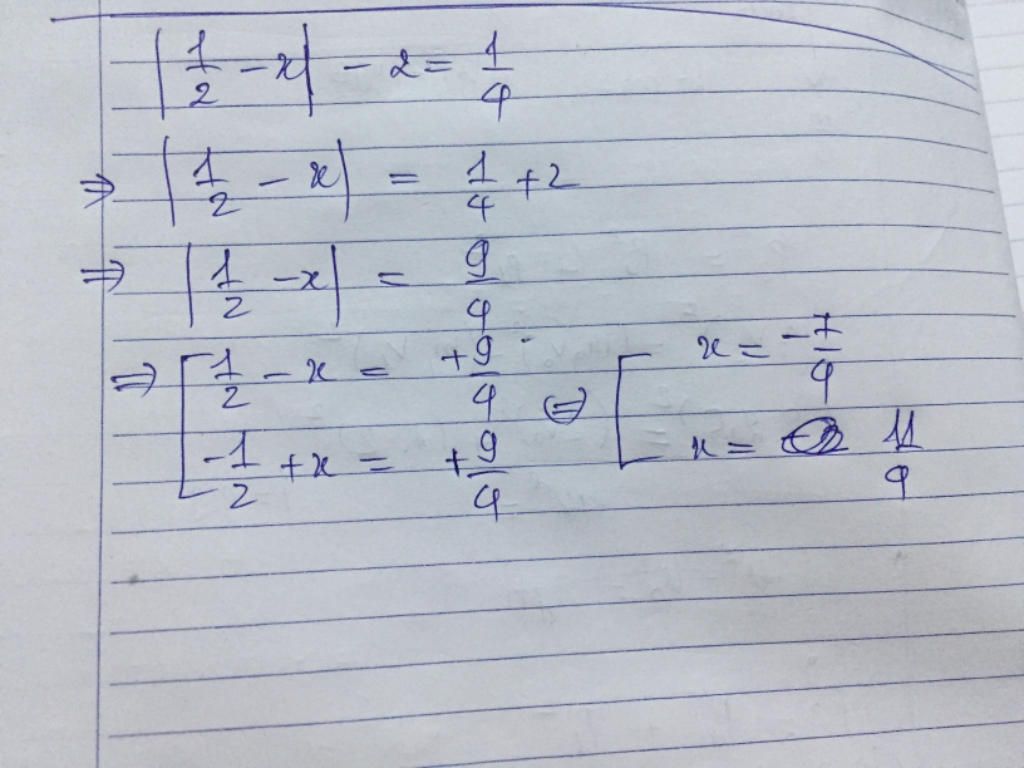 |1/2 - x| - 2 = 1/4
⇒ |1/2 - x| = 1/4 + 2
⇒ |1/2 - x| = 9/4
⇒ [ 1/2 - x = +9/4 ⇔ [ x = -7/4
-1/2 + x = +9/4 x = 11/4